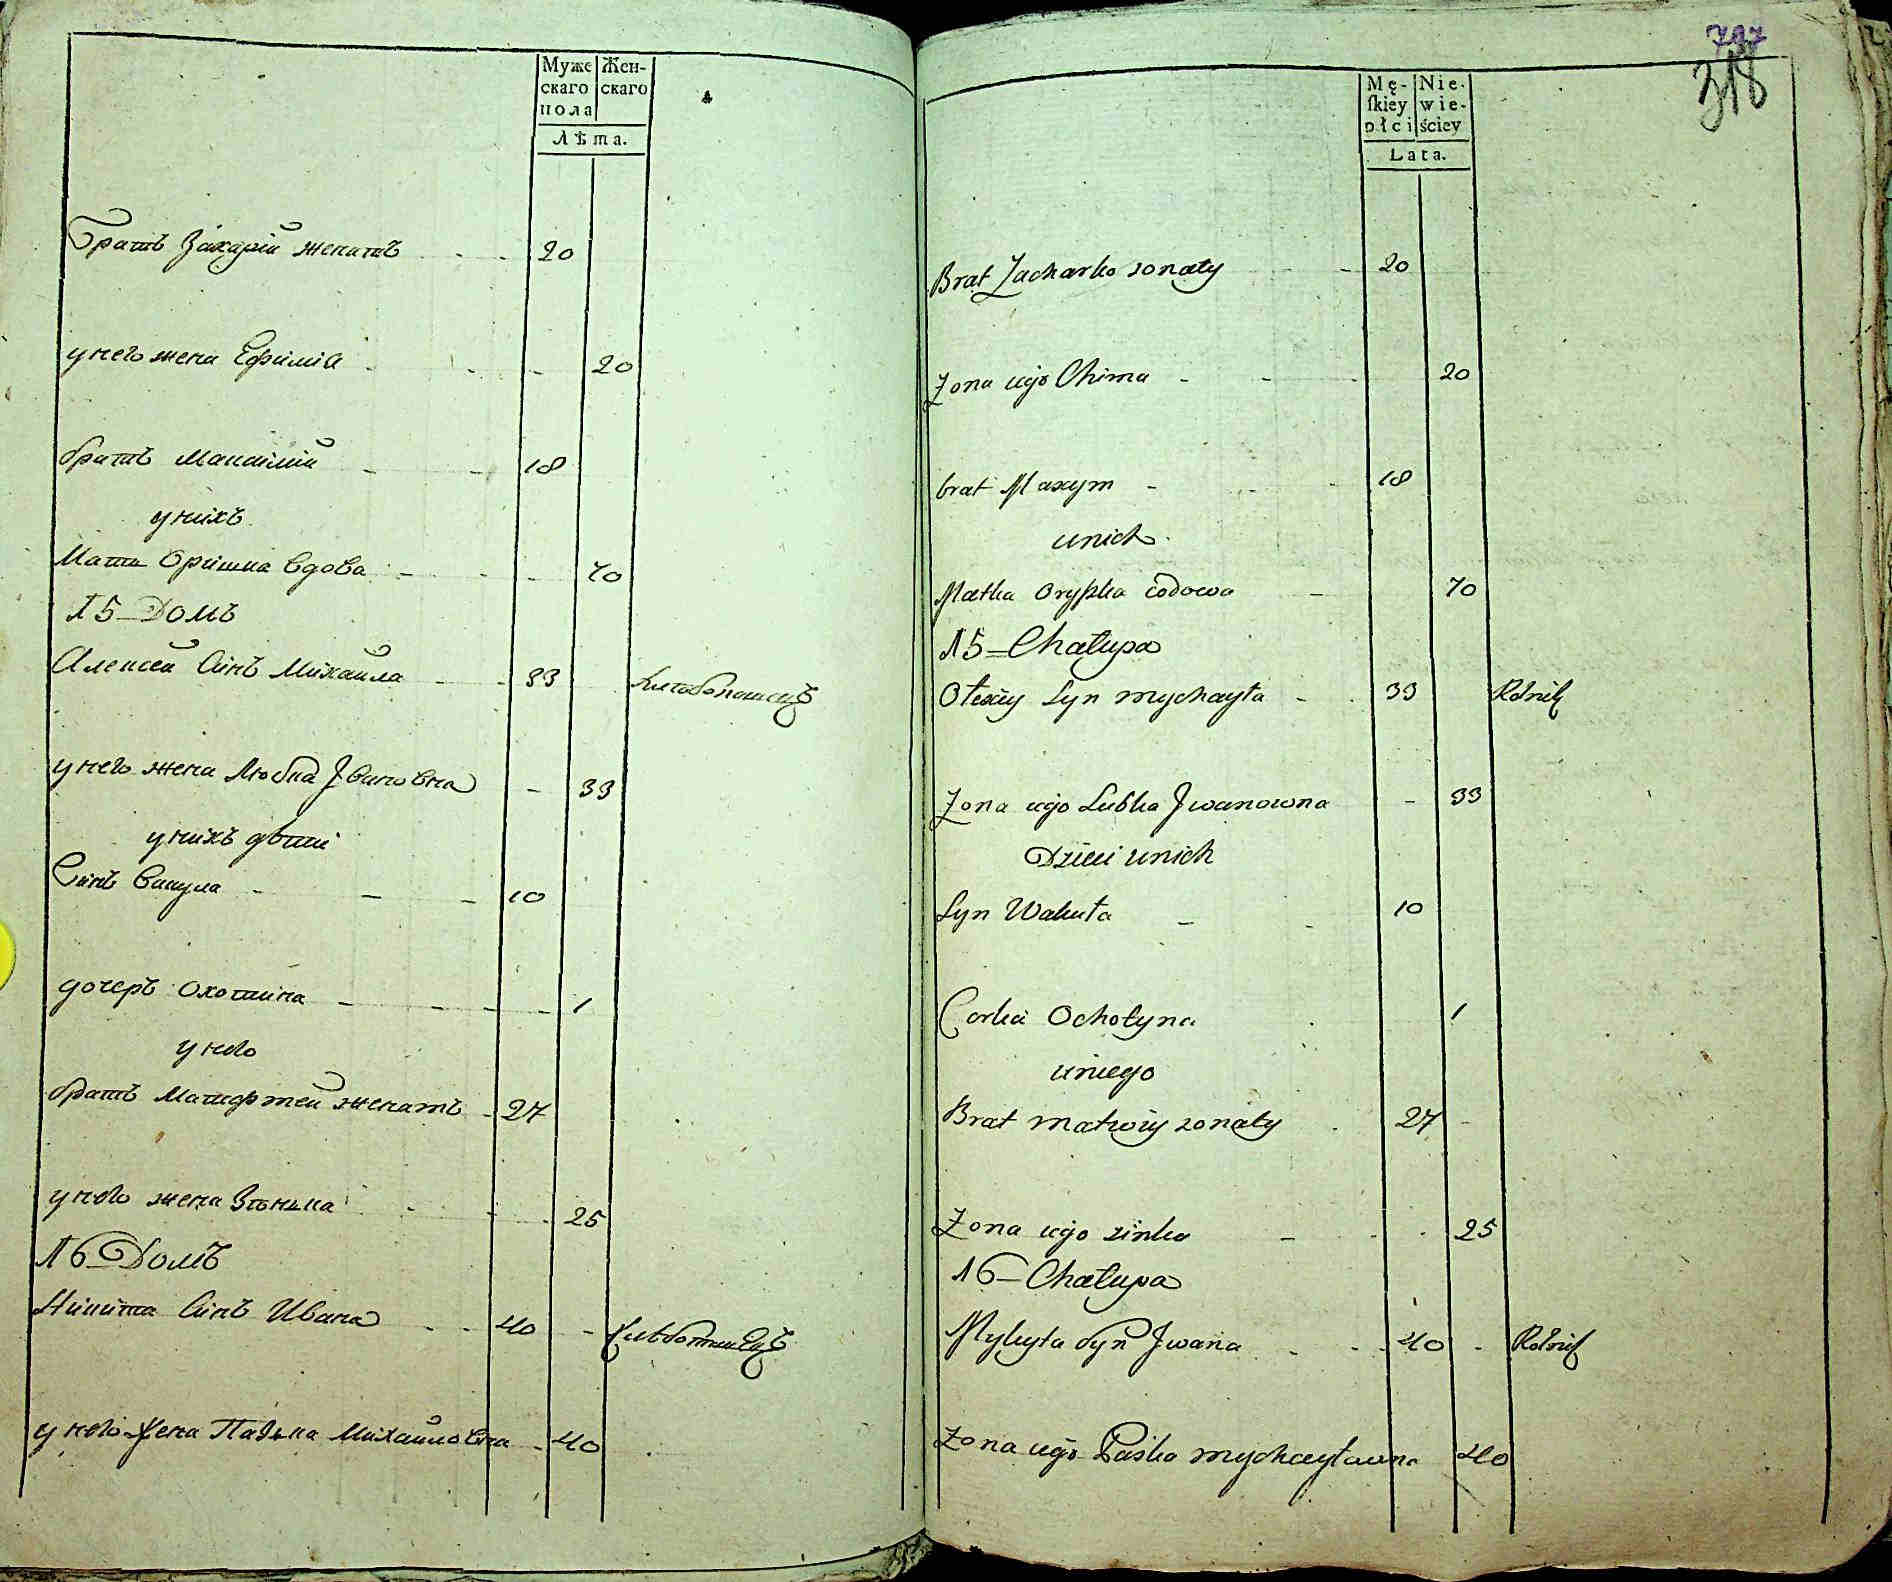 Муже Жен-
скаго скаго
пола
Лѣта.
Братъ Захарій женатъ 20
у него жена Ефимія 20
братъ Максимій 18
у нихъ
Мать Оришка вдова 70
15 Домъ
Алексей Синъ Михайла 33 хлебопашецъ
у него жена Любка Івановна 33
у нихъ дѣти
Синъ Вакула 10
дочеръ Охотина 1
у него
братъ Матфтей женатъ 27
у него жена Зѣнька 25
16 Домъ
Никита Синъ Ивана 40 Хлебопашецъ
у него жена Паська Михайловна 40
797
318
Mę- Nie-
skiey wie-
płci ściey
Lata.
Brat Zacharko zonaty 20
Zona iego Chima 20
brat Maxym 18
unich
Matka Oryszka wdowa 70
15 Chałupa
Ołexiy Syn mychayła 33 Rolnik
Zona iego Lubka Jwanowna 33
Dzieci unich
Syn Wakuła 10
Corka Ochotyna 1
uniego
Brat matwiy zonaty 27
Zona iego zinka 25
16 Chałupa
Mykyta Syn Jwana 40 Rolnik
Zona iego Paśka mychayłowna 40